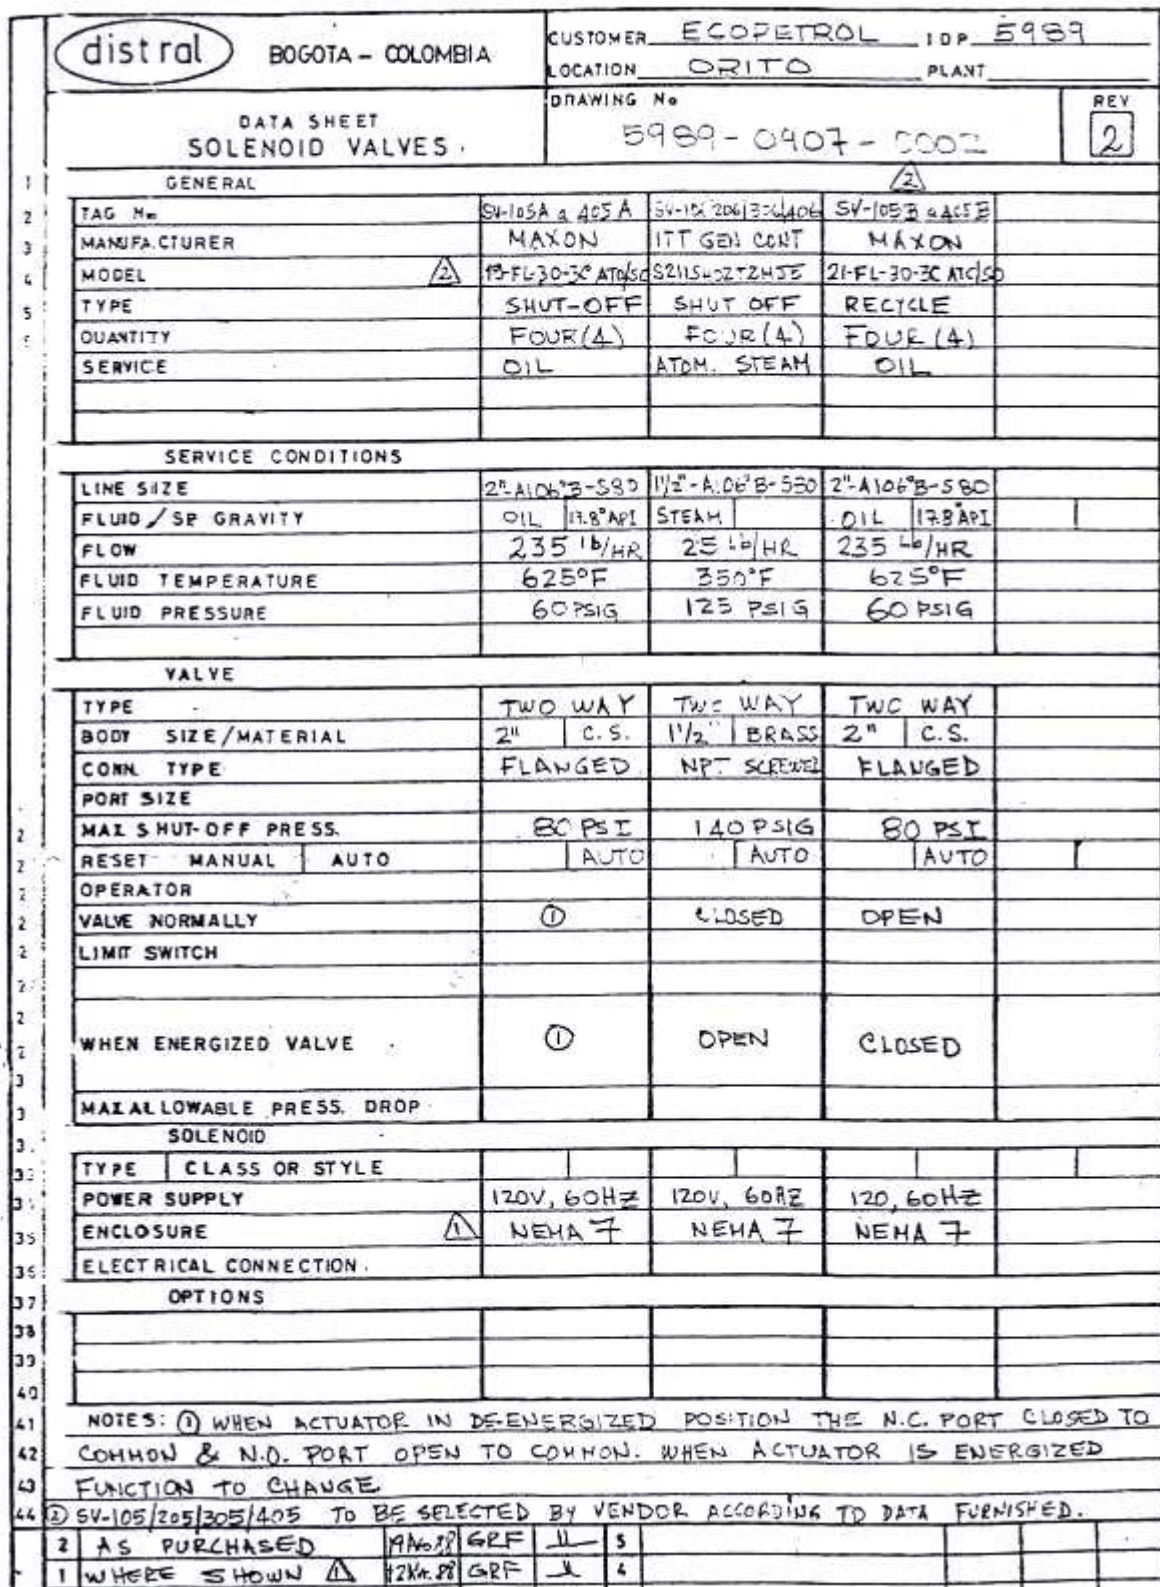 distral BOGOTA - COLOMBIA
CUSTOMER ECOPETROL IDP 5989
LOCATION ORITO PLANT
DATA SHEET
SOLENOID VALVES
DRAWING No
5989-0407-0002
REV
2
1 GENERAL 2
2 TAG No SV-105A a 405A SV-106/206/306/406 SV-105B a 405B
3 MANUFACTURER MAXON ITT GEN CONT MAXON
4 MODEL 2 21-FL-30-3C
5 TYPE SHUT-OFF SHUT OFF RECYCLE
QUANTITY FOUR (4) FOUR (4) FOUR (4)
SERVICE OIL ATOM. STEAM OIL
SERVICE CONDITIONS
LINE SIZE 2"-A106°B-S80 1 1/2"-A106°B-S80 2"-A106°B-S80
FLUID / SP GRAVITY OIL 17.8°API STEAM OIL 17.8°API
FLOW 235 lb/HR 25 Lb/HR 235 Lb/HR
FLUID TEMPERATURE 625°F 350°F 625°F
FLUID PRESSURE 60 PSIG 125 PSIG 60 PSIG
VALVE
TYPE TWO WAY TWO WAY TWO WAY
BODY SIZE/MATERIAL 2" C.S. 1 1/2" BRASS 2" C.S.
CONN. TYPE FLANGED NPT SCREWED FLANGED
PORT SIZE
MAX SHUT-OFF PRESS. 80 PSI 140 PSIG 80 PSI
RESET MANUAL AUTO AUTO AUTO AUTO
OPERATOR
VALVE NORMALLY ① CLOSED OPEN
LIMIT SWITCH
WHEN ENERGIZED VALVE ① OPEN CLOSED
MAX ALLOWABLE PRESS. DROP
SOLENOID
TYPE CLASS OR STYLE
POWER SUPPLY 120V, 60HZ 120V, 60HZ 120, 60HZ
ENCLOSURE 1 NEMA 7 NEMA 7 NEMA 7
36 ELECTRICAL CONNECTION.
37 OPTIONS
38
39
40
41 NOTES: ① WHEN ACTUATOR IN DE-ENERGIZED POSITION THE N.C. PORT CLOSED TO
42 COMMON & N.O. PORT OPEN TO COMMON. WHEN ACTUATOR IS ENERGIZED
43 FUNCTION TO CHANGE
44 ② SV-105/205/305/405 TO BE SELECTED BY VENDOR ACCORDING TO DATA FURNISHED.
2 AS PURCHASED GRF 5
1 WHERE SHOWN 1 GRF 4